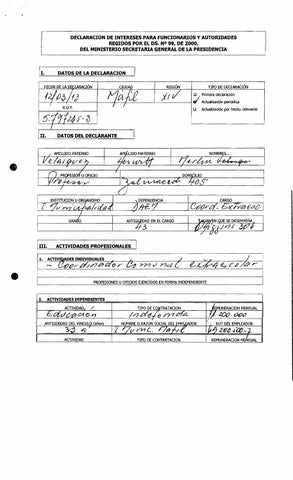 DECLARACION DE INTERESES PARA FUNCIONARIOS Y AUTORIDADES
REGIDOS POR EL DS. Nº 99, DE 2000,
DEL MINISTERIO SECRETARIA GENERAL DE LA PRESIDENCIA
I. DATOS DE LA DECLARACION
FECHA DE LA DECLARACIÓN CIUDAD REGIÓN TIPO DE DECLARACIÓN
12/03/13 Máfil XIV
Primera declaración
Actualización periódica
Actualización por hecho relevante
R.U.P.
5.797.245-3
II. DATOS DEL DECLARANTE
APELLIDO PATERNO APELLIDO MATERNO NOMBRES
Velásquez
PROFESIÓN U OFICIO DOMICILIO
Profesor Balmaceda 405
INSTITUCIÓN U ORGANISMO DEPENDENCIA CARGO
I Municipalidad DAEM Coord. Extraesc
GRADO ANTIGÜEDAD EN EL CARGO
43 O'Higgins
III. ACTIVIDADES PROFESIONALES
1. ACTIVIDADES INDIVIDUALES
- Coordinador Comunal extraescolar
PROFESIONES U OFICIOS EJERCIDOS EN FORMA INDEPENDIENTE
2. ACTIVIDADES DEPENDIENTES
ACTIVIDAD TIPO DE CONTRATACION REMUNERACION MENSUAL
Educación Indefinida
ANTIGÜEDAD DEL VINCULO (años) NOMBRE O RAZON SOCIAL DEL EMPLEADOR RUT DEL EMPLEADOR
I Munic. Máfil 69.200.
ACTIVIDAD TIPO DE CONTRATACION REMUNERACION MENSUAL